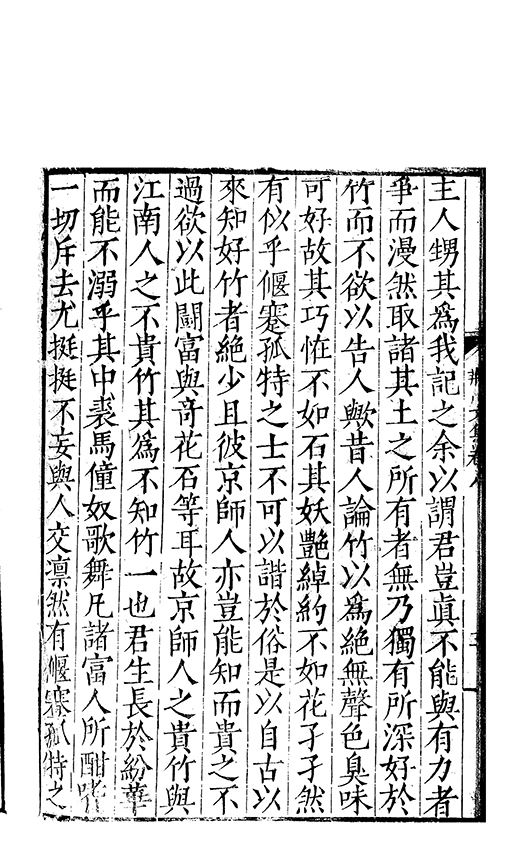 荊川文集卷八
主人甥其爲我記之余以謂君豈眞不能與有力者
爭而漫然取諸其土之所有者無乃獨有所深好於
竹而不欲以告人歟昔人論竹以爲絕無聲色臭味
可好故其巧恠不如石其妖艷綽約不如花孑孑然
有似乎偃蹇孤特之士不可以諧於俗是以自古以
來知好竹者絕少且彼京師人亦豈能知而貴之不
過欲以此鬪富與奇花石等耳故京師人之貴竹與
江南人之不貴竹其爲不知竹一也君生長於紛華
而能不溺乎其中裘馬僮奴歌舞凡諸富人所酣嗜
一切斥去尤挺挺不妄與人交凛然有偃蹇孤特之